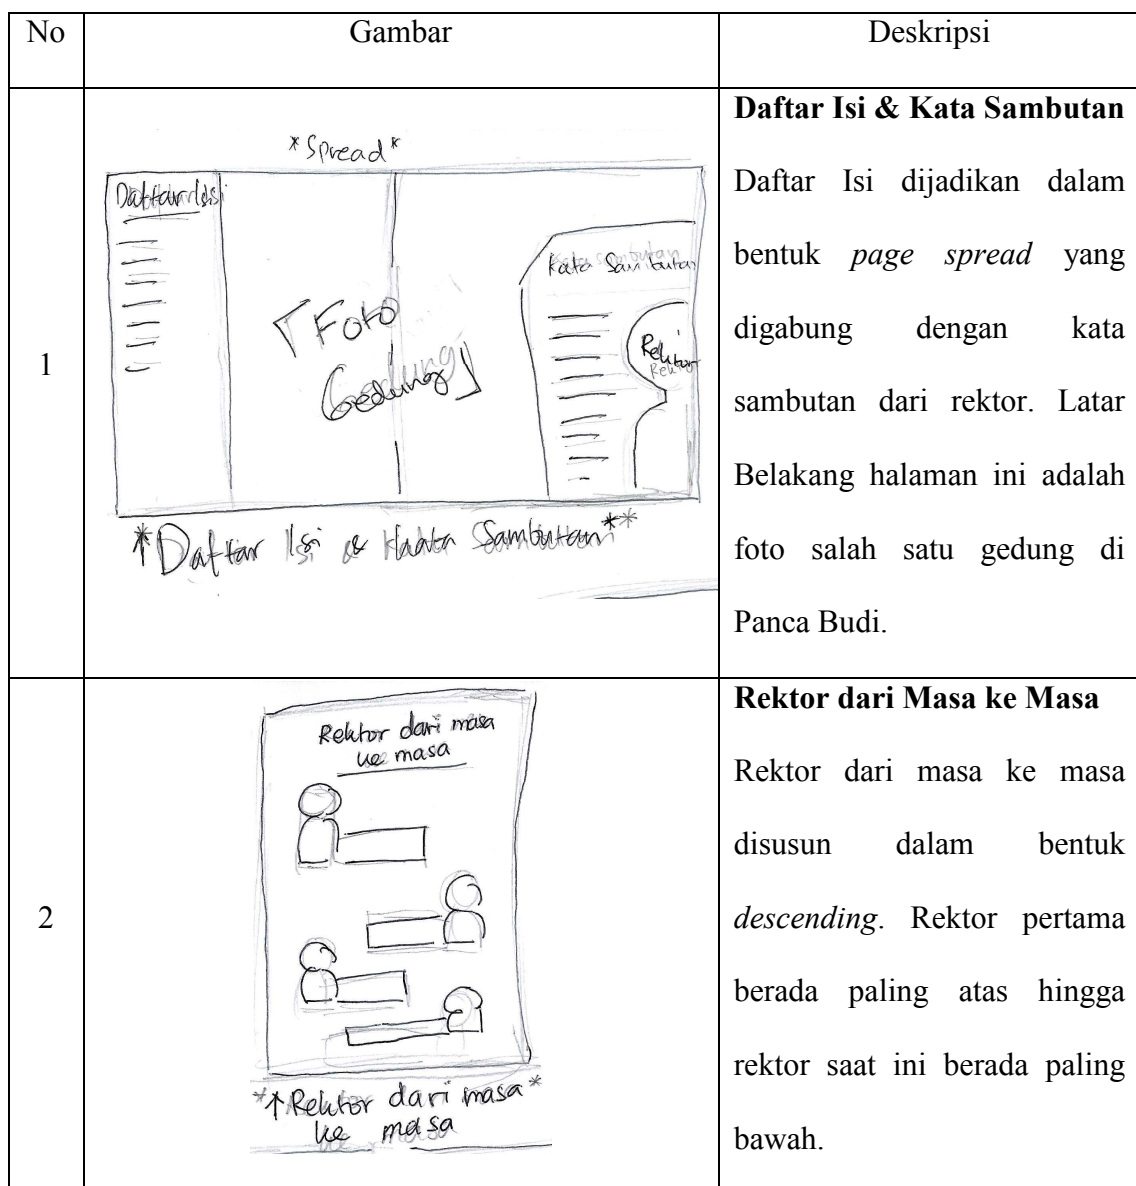 No Gambar Deskripsi
1
*Spread*
Daftar Isi
「Foto
Gedung」
Kata Sambutan
Rektor
*Daftar Isi & Kata Sambutan**
Daftar Isi & Kata Sambutan
Daftar Isi dijadikan dalam
bentuk page spread yang
digabung dengan kata
sambutan dari rektor. Latar
Belakang halaman ini adalah
foto salah satu gedung di
Panca Budi.
2
Rektor dari masa
ke masa
*↑Rektor dari masa*
ke masa
Rektor dari Masa ke Masa
Rektor dari masa ke masa
disusun dalam bentuk
descending. Rektor pertama
berada paling atas hingga
rektor saat ini berada paling
bawah.